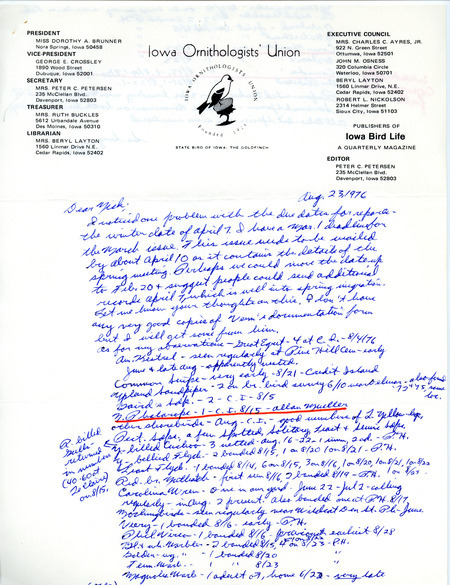 PRESIDENT
MISS DOROTHY A. BRUNNER
Nora Springs, Iowa 50458
VICE-PRESIDENT
GEORGE E. CROSSLEY
1890 Wood Street
Dubuque, Iowa 52001
SECRETARY
MRS. PETER C. PETERSEN
235 McClellan Blvd.
Davenport, Iowa 52803
TREASURER
MRS. RUTH BUCKLES
5612 Urbandale Avenue
Des Moines, Iowa 50310
LIBRARIAN
MRS. BERYL LAYTON
1560 Linmar Drive N.E.
Cedar Rapids, Iowa 52402
Iowa Ornithologists' Union
IOWA ORNITHOLOGISTS UNION
Founded 1923
STATE BIRD OF IOWA: THE GOLDFINCH
EXECUTIVE COUNCIL
MRS. CHARLES C. AYRES, JR.
922 N. Green Street
Ottumwa, Iowa 52501
JOHN M. OSNESS
320 Columbia Circle
Waterloo, Iowa 50701
BERYL LAYTON
1560 Linmar Drive, N.E.
Cedar Rapids, Iowa 52402
ROBERT L. NICKOLSON
2314 Helmer Street
Sioux City, Iowa 51103
PUBLISHERS OF
Iowa Bird Life
A QUARTERLY MAGAZINE
EDITOR
PETER C. PETERSEN
235 McClellan Blvd.
Davenport, Iowa 52803
Aug. 23/1976
Dear Nick:
I noticed one problem with the due dates for reports -
the winter date of April 7. I have a Mar. 1 deadline for
the March issue. This issue needs to be mailed
by about April 10 as it contains the details of the
spring meeting. Perhaps we could move the date up
to Feb. 20 & suggest people could send additional
records April 7, which is well into spring migration.
Let me know your thoughts on this. I don't have
any very good copies of Vern's documentation form
but I will get some from him.
As for my observations - Great Egret - 4 at C.I. - 8/4/76
Am. Bittern - seen regularly at Pine Hill Cem - early
June & late Aug - apparently nested.
Common Snipe - very early - 8/21 - Credit Island
Upland Sandpiper - 2 on br. bird survey 6/10 - also found
Baird's Sdp. - 2 - C.I. - 8/5
N. Phalarope - 1 - C.I. 8/15 - Allan Mueller
other shorebirds - Aug - C.I. - good numbers of L. Yellowlegs,
Pect. Sdps, a few Spotted, Solitary, Least & Semi Sdps
R. billed
Gulls
returned
in numbers
(40-60 at
I. Claire)
on 8/15.
Y-billed Cuckoo - 3 netted - P.H.
Traill's Flyc. - 2 banded 8/15, 1 on 8/20 1 on 8/21 - P.H.
Least Flyc. - 1 banded 8/14, 6 on 8/15, 3 on 8/16, 1 on 8/20, 1 on 8/21,
Red-br. Nuthatch - first seen 8/16, 2 banded 8/19 - P.H.
Carolina Wren - one in our yard - June 22 - July 2 - calling
regularly - in Aug. 2 present. Also banded one at P.H. 8/17
Mockingbirds - seen regularly near Wildcat Den St. Pk - June
Veery - 1 banded 8/6 - early - P.H.
Phil. Vireo - 1 banded 8/16 - previous earliest 8/28
Bl & wh Warbler - 2 banded 8/15, 8/23 - P.H.
Golden-wg. " - 1 banded 8/20 "
Tenn. Warb. - 1 " 8/23 "
Magnolia Warb. - 1 home 6/2 - very late